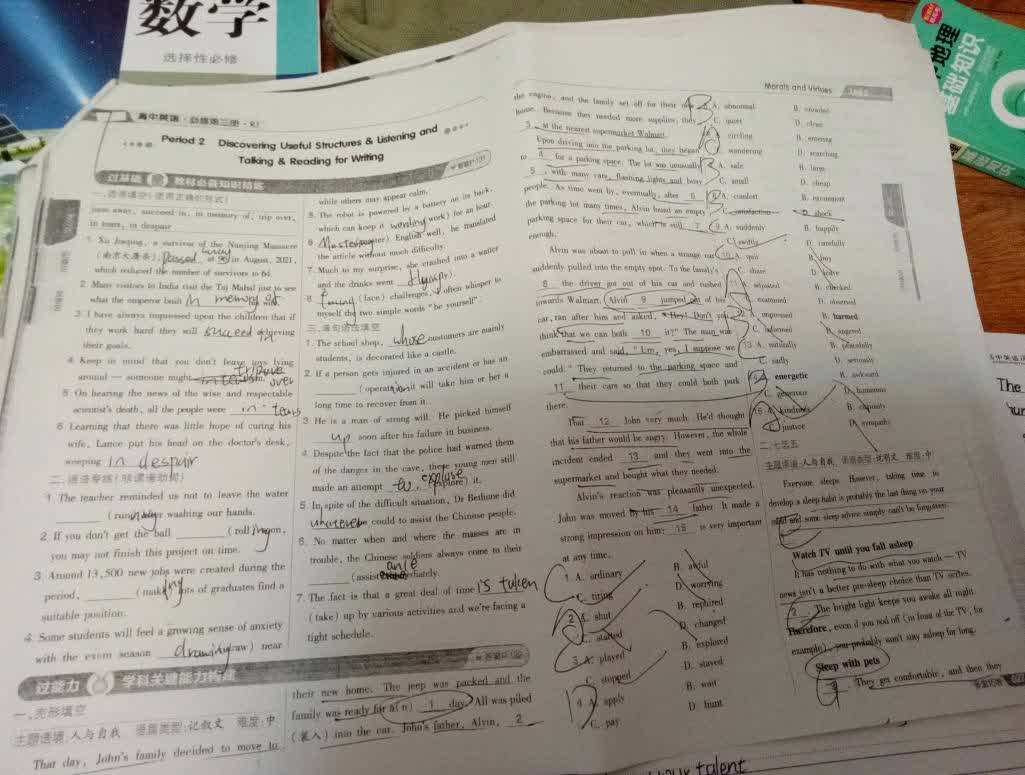 数学
选择性必修
地理
基础知识
高中英语·必修第三册·RJ
Period 2 Discovering Useful Structures & Listening and
Talking & Reading for Writing
过基础 教材必备知识精练
pass away, succeed in, in memory of, trip over,
in tears, in despair
1. Xu Jiaqing, a survivor of the Nanjing Massacre
(南京大屠杀), passed away in August, 2021,
which reduced the number of survivors to 64.
2. Many visitors to India visit the Taj Mahal just to see
what the emperor built in memory of
3. I have always impressed upon the children that if
they work hard they will succeed in
their goals.
4. Keep in mind that you don't leave toys lying
around — someone might trip over
5. On hearing the news of the wise and respectable
scientist's death, all the people were in tears
6. Learning that there was little hope of curing his
wife, Lance put his head on the doctor's desk,
weeping in despair
1. The teacher reminded us not to leave the water
(run) after washing our hands.
2. If you don't get the ball (roll) soon,
you may not finish this project on time.
3. Around 13,500 new jobs were created during the
period, (make) lots of graduates find a
suitable position.
4. Some students will feel a growing sense of anxiety
with the exam season drawing (draw) near
while others may appear calm.
5. The robot is powered by a battery on its back,
which can keep it working (work) for an hour.
6. (master) English well, he translated
the article without much difficulty.
7. Much to my surprise, she crashed into a waiter
and the drinks went
8. facing (face) challenges, I often whisper to
myself the two simple words "be yourself".
1. The school shop, whose customers are mainly
students, is decorated like a castle.
2. If a person gets injured in an accident or has an
(operate), it will take him or her a
long time to recover from it.
3. He is a man of strong will. He picked himself
up soon after his failure in business.
4. Despite the fact that the police had warned them
of the dangers in the cave, these young men still
made an attempt to explore (explore) it.
5. In spite of the difficult situation, Dr Bethune did
whatever could to assist the Chinese people.
6. No matter when and where the masses are in
trouble, the Chinese soldiers always come to their
(assist) immediately.
7. The fact is that a great deal of time is taken
(take) up by various activities and we're facing a
tight schedule.
过能力 学科关键能力构建
一、完形填空
主题语境:人与自我 语篇类型:记叙文 难度:中
That day, John's family decided to move to
their new home. The jeep was packed and the
family was ready for a(n) 1 day. All was piled
(装入) into the car. John's father, Alvin, 2
Morals and Virtues
the engine, and the family set off for their new
home. Because they needed more supplies, they
3 at the nearest supermarket Walmart.
Upon driving into the parking lot, they began
to 4 for a parking space. The lot was unusually
5, with many cars, flashing lights and busy
people. As time went by, eventually, after 6
the parking lot many times, Alvin found an empty
parking space for their car, which is still 7
enough.
Alvin was about to pull in when a strange car
suddenly pulled into the empty spot. To the family's
8 the driver got out of his car and rushed
towards Walmart. Alvin 9 jumped out of his
car, ran after him and asked, "Hey! Don't you
think that we can both 10 it?" The man was
embarrassed and said, "I.m, yes, I suppose we
could." They returned to the parking space and
11 their cars so that they could both park
there.
That 12 John very much. He'd thought
that his father would be angry. However, the whole
incident ended 13 and they went into the
supermarket and bought what they needed.
Alvin's reaction was pleasantly unexpected.
John was moved by his 14 father. It made a
strong impression on him: 15 is very important
at any time.
1. A. ordinary
B. awful
C. tiring
D. worrying
2. A. shut
B. repaired
C. started
D. changed
3. A. played
B. explored
C. stopped
D. stayed
4. A. apply
B. wait
C. pay
D. hunt
A. abnormal
B. crowded
C. quiet
D. clean
A. circling
B. entering
C. wandering
D. searching
A. safe
B. large
C. small
D. cheap
A. comfort
B. excitement
C. satisfaction
D. shock
9. A. suddenly
B. happily
C. swiftly
D. carefully
10. A. quit
B. buy
C. share
D. leave
A. adjusted
B. checked
C. examined
D. observed
A. impressed
B. harmed
C. informed
D. angered
13. A. naturally
B. peacefully
C. sadly
D. seriously
A. energetic
B. awkward
C. generous
D. humorous
15. A. kindness
B. curiosity
C. justice
D. sympathy
二、七选五
主题语境:人与自我 语篇类型:说明文 难度:中
Everyone sleeps. However, taking time to
develop a sleep habit is probably the last thing on your
mind and some sleep advice simply can't be forgotten.
Watch TV until you fall asleep
It has nothing to do with what you watch — TV
news isn't a better pre-sleep choice than TV series.
2. The bright light keeps you awake all night.
Therefore, even if you nod off (in front of the TV, for
example), you probably won't stay asleep for long.
Sleep with pets
3. They get comfortable, and then they
The
your talent